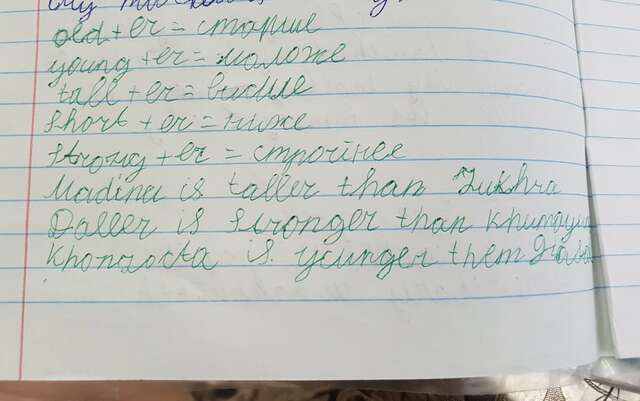 old + er = старше
young + er = моложе
tall + er = више
short + er = ниже
strong + er = строiнее
Madina is taller than Zukhra
Daller is stronger than
is younger them